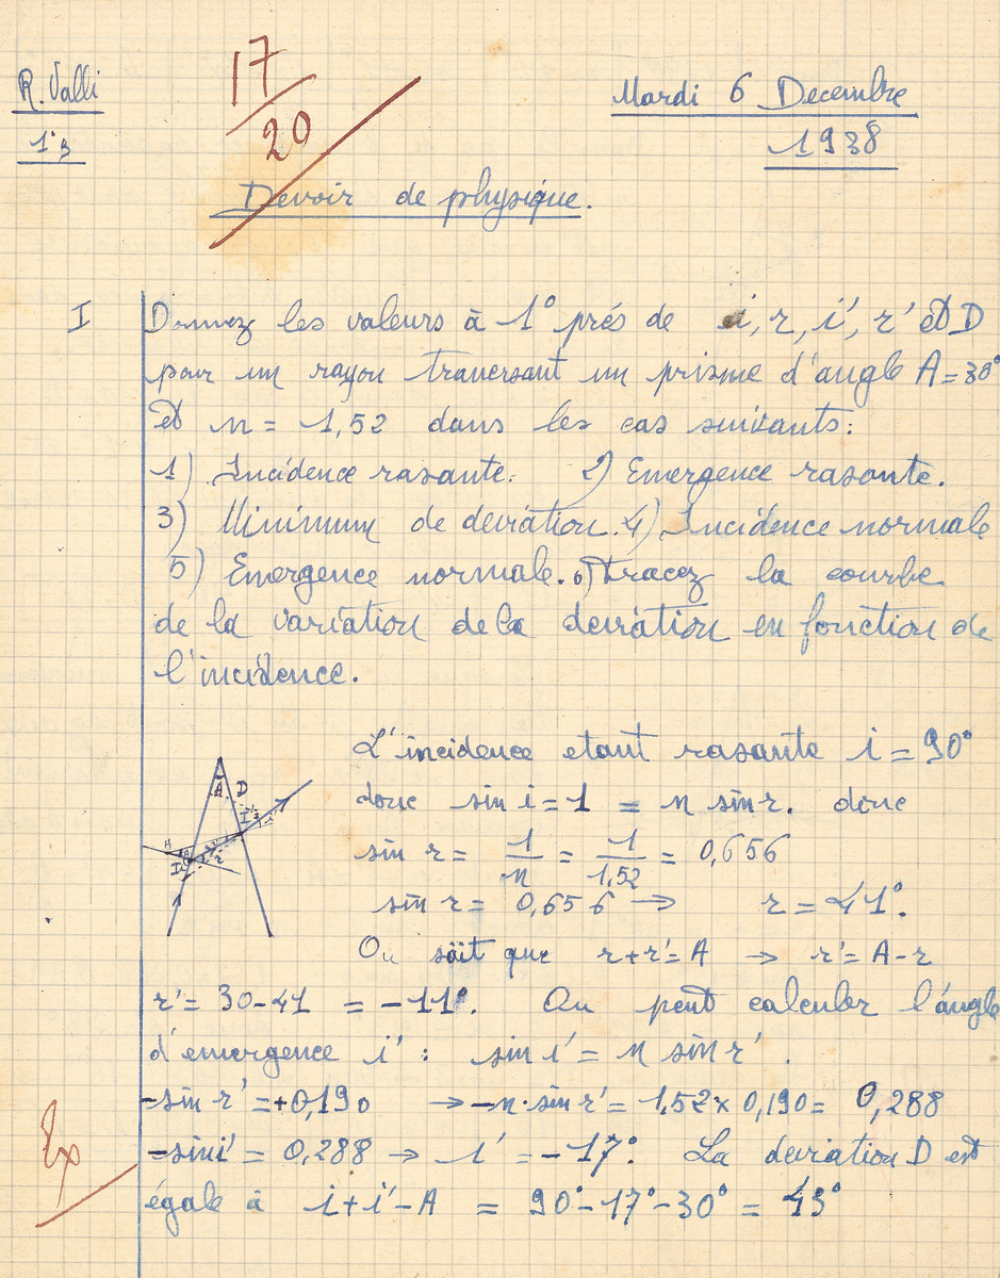 R. Valli
17
20
Mardi 6 Decembre
1938
Devoir de physique.
I
Donnez les valeurs à 1° prés de i, r, i', r' et D
pour un rayon traversant un prisme d'angle A = 30°
et n = 1,52 dans les cas suivants:
1) Incidence rasante. 2) Emergence rasante.
3) Minimum de deviation. 4) Incidence normale
5) Emergence normale. 6) Tracez la courbe
de la variation de la deviation en fonction de
l'incidence.
L'incidence etant rasante i = 90°
donc sin i = 1 = n sin r. donc
sin r = 1/n = 1/1,52 = 0,656
sin r = 0,656 → r = 41°.
A D
On sait que r + r' = A → r' = A - r
r' = 30 - 41 = -11°. On peut calculer l'angle
d'emergence i' : sin i' = n sin r'.
-sin r' = +0,190 → -n · sin r' = 1,52 x 0,190 = 0,288
Ex
-sin i' = 0,288 → i' = -17°. La deviation D est
égale à i + i' - A = 90° - 17° - 30° = 43°